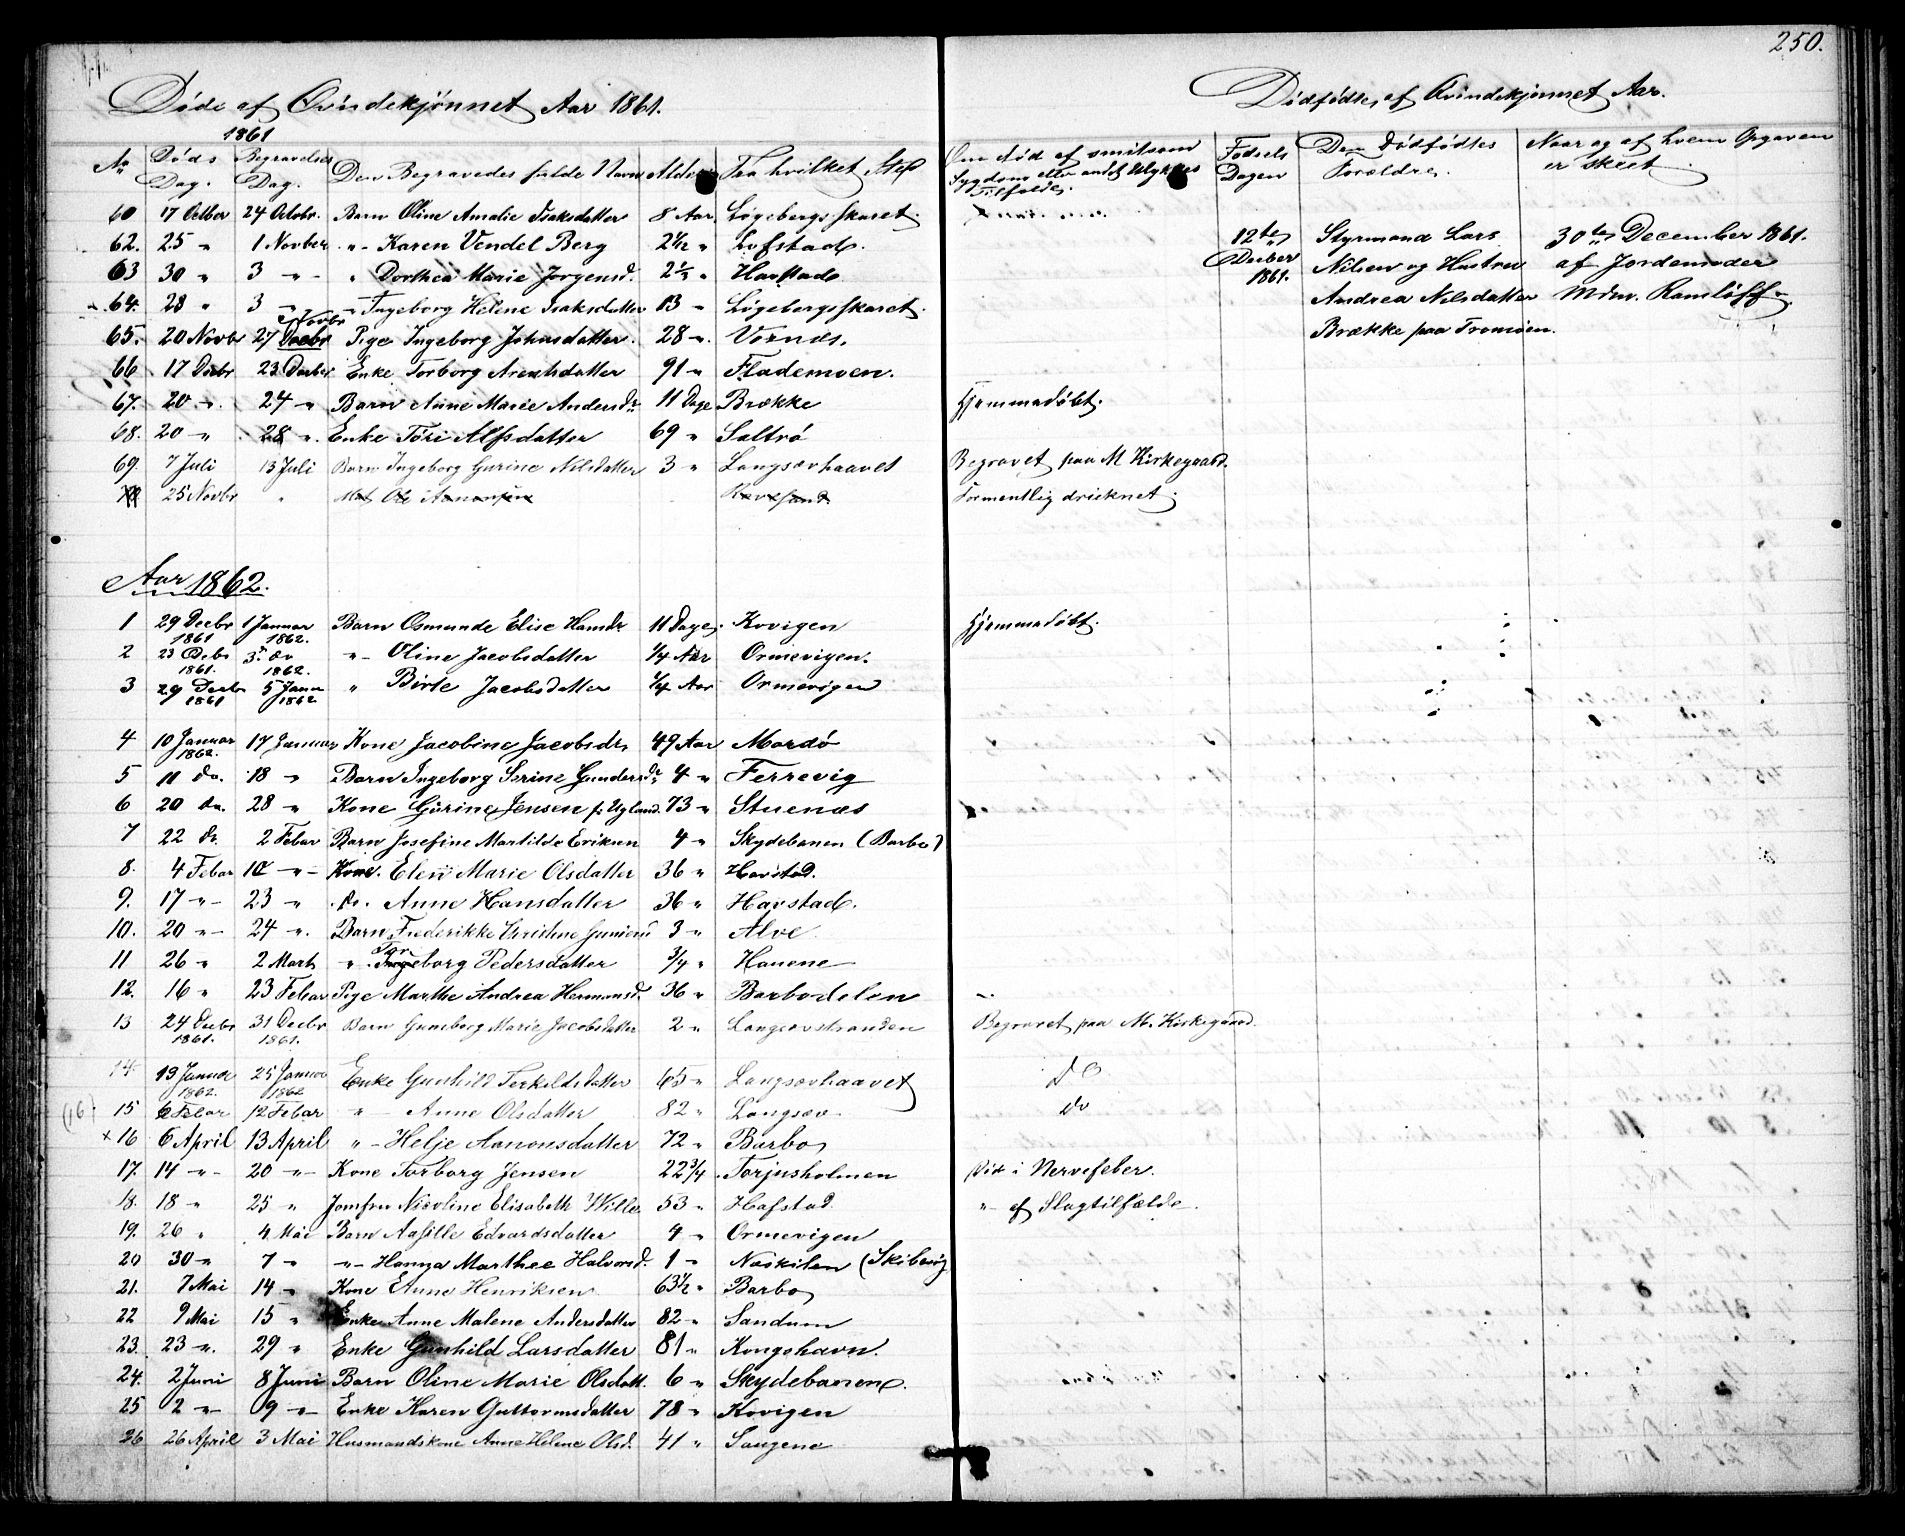 250.
Døde af Qvindekjønnet Aar 1861.
Dødfødte af Qvindekjønnet Aar.
1861
No Døds Dag. Begravelses Dag. Den Begravedes fulde Navn Alder Fra hvilket Sted
Om død af smitsom Sygdom eller andet Ulykkes Tilfælde.
Fødsels Dagen
Den Dødfødtes Forældre.
Naar og af hvem Opgaven er skeet
60 17 Octber 24 Octobr. Barn Oline Amalie Isaksdatter 8 Aar. Løgebergsskaret.
62. 25 " 1 Novber " Karen Vendel Berg 2 1/12 " Lofstad.
63 30 " 3 " " Dorthea Marie Jørgensd. 2 1/2 " Havstad
64. 28 " 3 " " Ingeborg Helene Isaksdatter 13 " Løgebergsskaret.
Novbr
65. 20 Novbr 27 Decbr Pige Ingeborg Johnsdatter. 28 " Vornæs.
66 17 Decbr 23 Decber Enke Torborg Arentsdatter 91 " Flademoen.
67. 20 " 24 " Barn Anne Marie Andersdr. 11 Dage Brække Hjemmedøbt.
68. 20 " 28 " Enke Tøri Alfsdatter 69 " Saltrø
69. 7 Juli 13 Juli Barn Ingeborg Gurine Nilsdatter 3 " Langsævhaavet Begravet paa M Kirkegaard.
25 Novbr " Mat Ole Aanonsen Havesund Formentlig druknet.
12te Decber 1861. Styrmand Lars 30te December 1861.
Nilsen og Hustru af Jordemoder
Andrea Nilsdatter Mdm. Ramløff
Brække paa Tromøen.
Aar 1862.
1 29 Decbr 1861 1 Januar 1862. Barn Osmunde Elise Hansdr. 11 Dage. Kovigen Hjemmedøbt.
2 23 Debr 1861. 3. do 1862. " Oline Jacobsdatter 1/4 Aar Ormevigen.
3 29 Decbr 1861 5 Janr 1862 " Birte Jacobsdatter 1/4 Aar Ormevigen
4 10 Januar 1862. 17 Januar Kone Jacobine Jacobsdr. 49 Aar Mærdø
5 11 do. 18 " Barn Ingeborg Serine Gundersdr. 4 " Ferrevig
6 20 do. 28 " Kone Gurine Jensen f. Ugland. 73 " Stuenæs
7 22 do. 2 Febar Barn Josefine Martilde Eriksen 4 " Skydebanen (Barbo)
8. 4 Febar 10 " Kone. Elen Marie Olsdatter 36 " Havstad.
9. 17 " 23 " do. Anne Hansdatter 36 " Havstad.
10. 20 " 24 ". Barn Frederikke Christine 3 " Alve
11 26 " 2 Marts " Ingeborg Pedersdatter 3/4 " Hauene
Tor
12. 16 " 23 Febar Pige Marthe Andrea Hermansd. 36 " Barbodalen
13 24 Decbr 1861. 31 Decbr 1861. Barn Gunneborg Marie Jacobsdatter 2 " Langsævstranden Begravet paa M. Kirkegaard.
14 19 Januar 1862. 25 Januar 1862 Enke Gunhild Terkildsdatter 65 " Langsævhaavet do
(16) 15 6 Febar 12 Febar " Anne Olsdatter 82 " Langsæv do
× 16 6 April 13 April " Helje Aanonsdatter 72 " Barbo
17. 14 " 20 " Kone Torborg Jensen 22 3/4 Torjusholmen Død i Nervefeber.
18. 18 " 25 " Jomfru Nicoline Elisabeth Wille 53 " Hafstad. " af Slagtilfælde.
19. 26 " 4 Mai Barn Aasille Edvardsdatter 4 " Ormevigen
20 30 " 7 " " Hanna Marthee Halvorsd. 1 " Næskilen (Skibevig
21. 7 Mai 14 " Kone Anne Henriksen 63 1/2 " Barbo
22 9 Mai 15 " Enke Anne Malene Andersdatter 82 " Sandum
23. 23 ". 29 " Enke Gunhild Larsdatter 81 " Kongshavn.
24. 2 Juni 8 Juni Barn Oline Marie Olsdatt. 6 " Skydebanen.
25 2 " 9 " Enke Karen Guttormsdatter 78 " Kovigen
26 26 April 3 Mai Husmandskone Anne Helene Olsd. 41 " Sougene